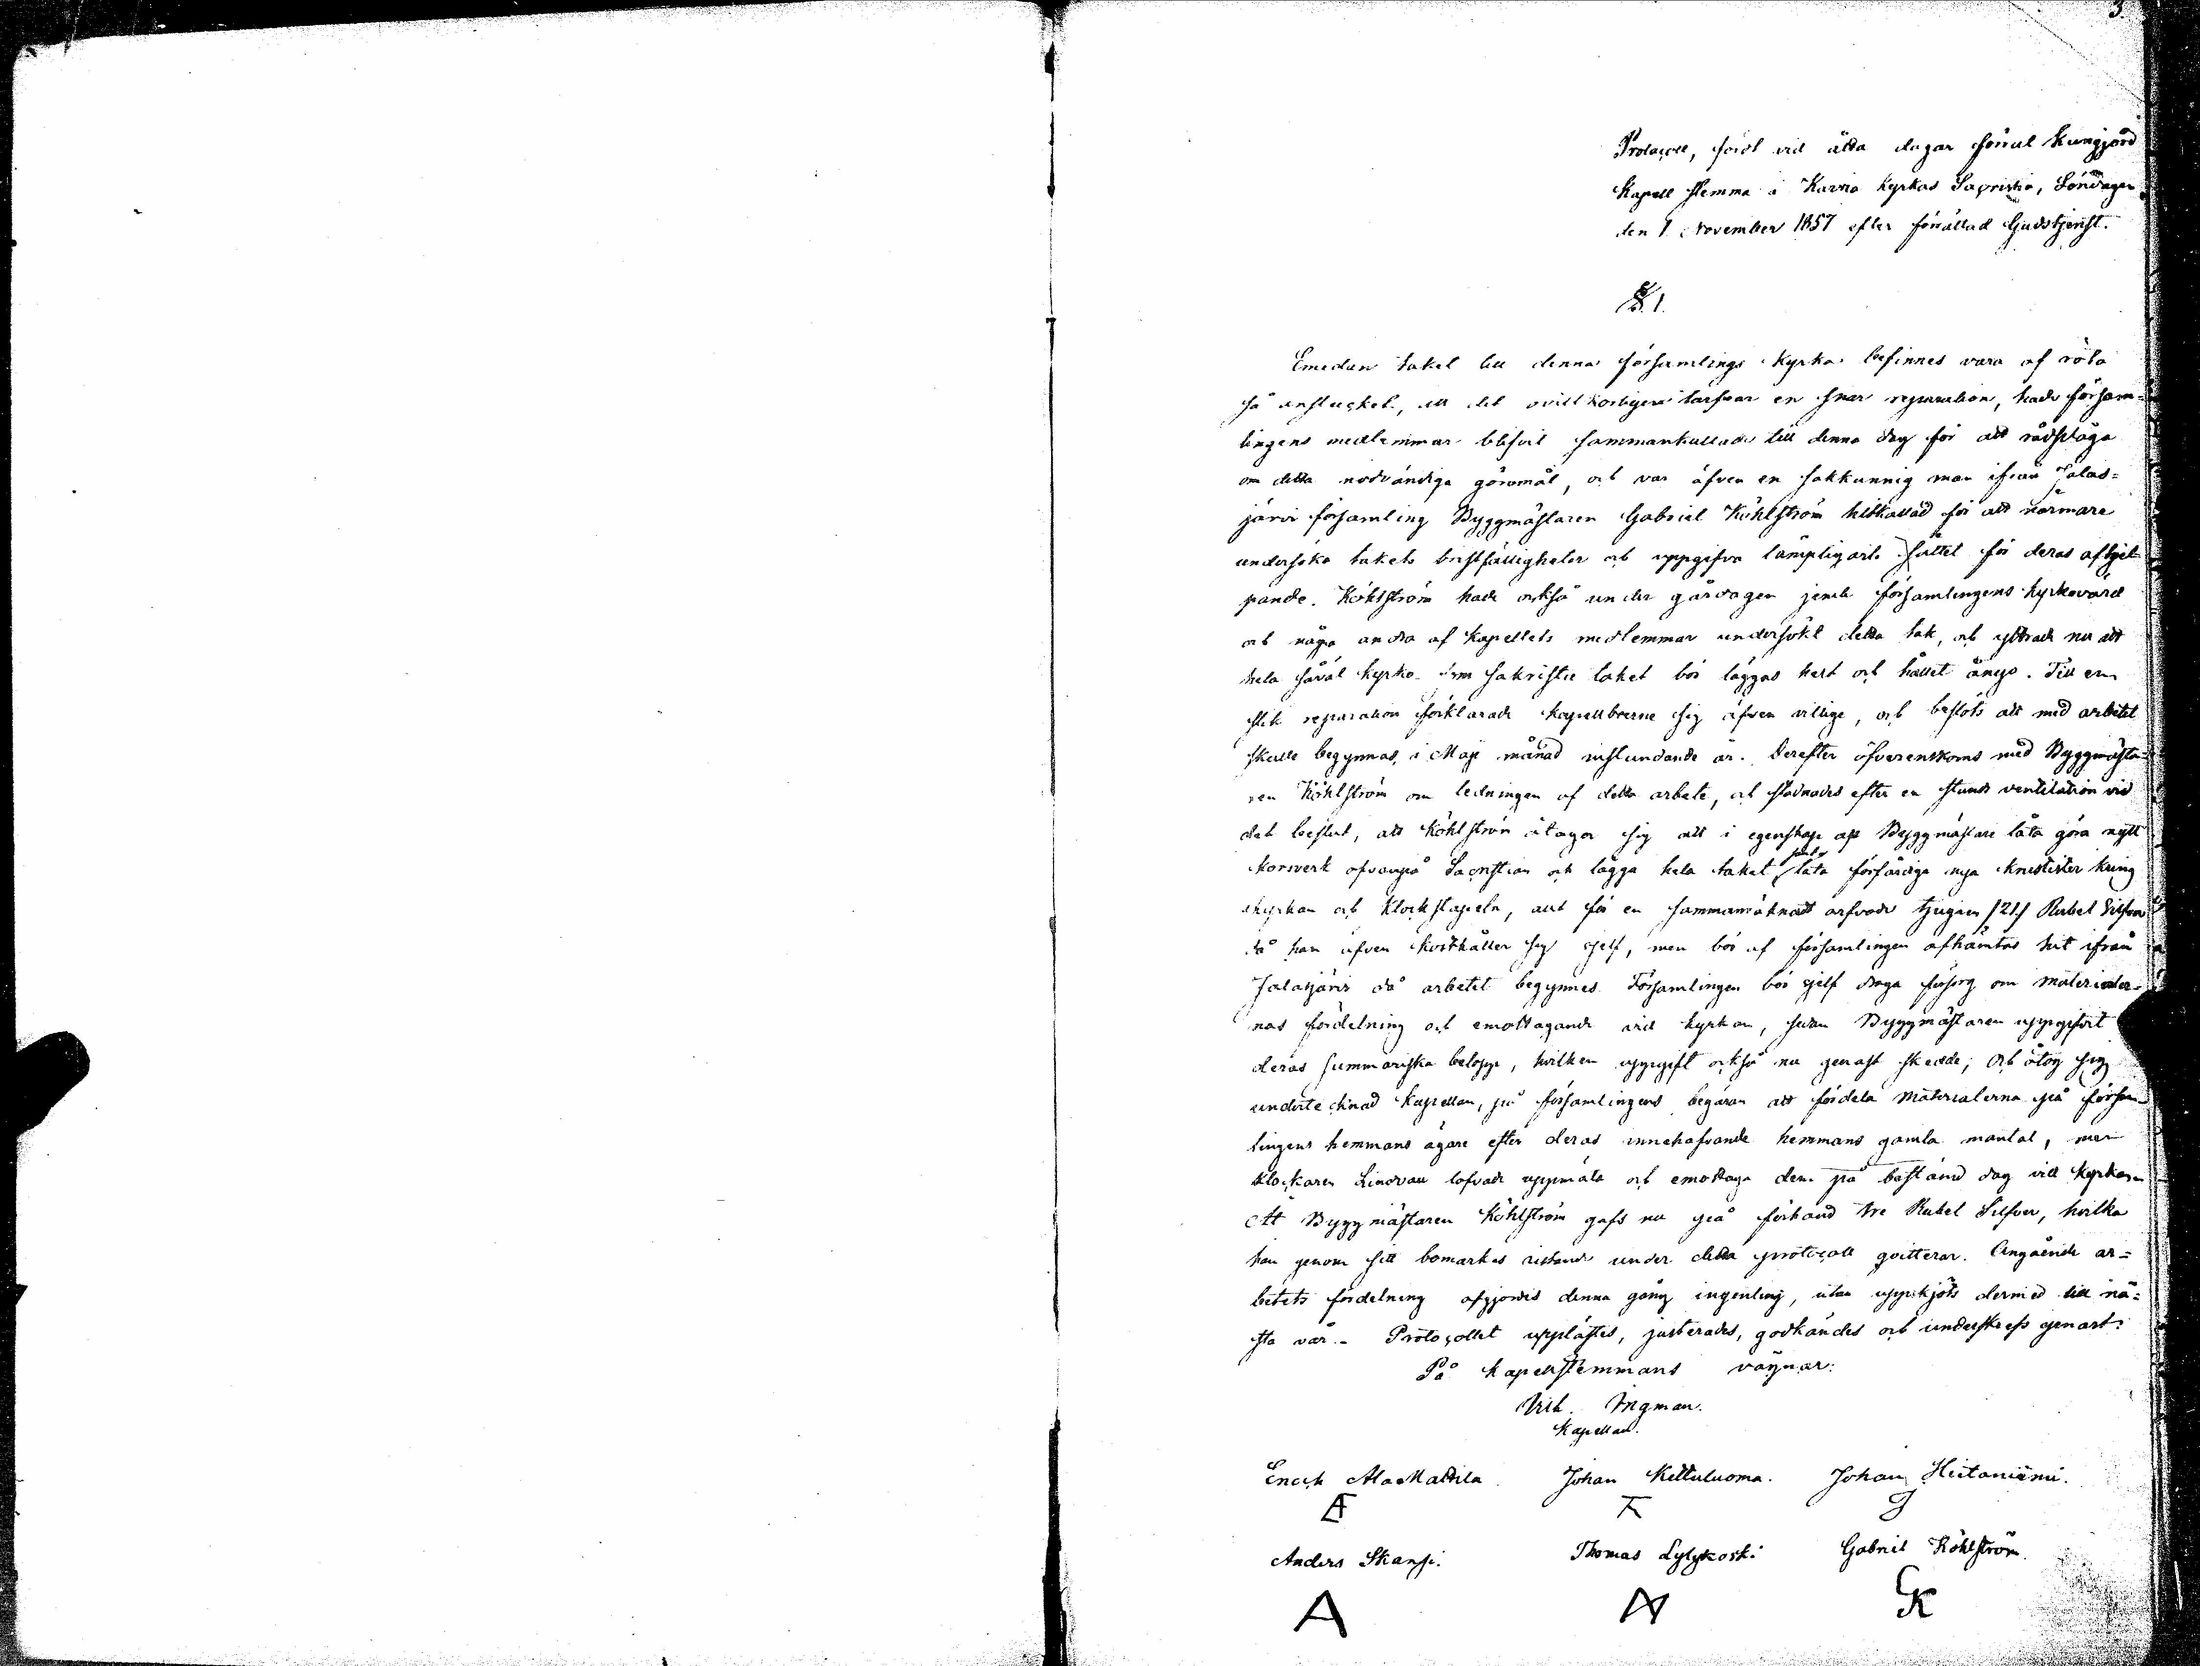 3
Protocoll, fördt vid åtta dagar förrut kungjord
Kapell stemma i Kavra Kyrkas Sacristia, Söndagen
den 1 November 1857 efter förrättad Gudstjenst.
§. 1.
Emedan taket till denna församlings Kyrka befinnes vara af röta
så anstucket, att det ovillkorligen tarfvar en snar reparation, hade försam=
lingens medlemmar blifvit sammankallade till denna dag för att rådpläga
om detta nödvändiga göromål, och var äfven en sakkunnig man ifrån Jalas=
järvi församling Byggmästaren Gabriel Köhlström hitkallad för att närmare
undersöka takets bristfälligheter och uppgifva lämpligaste sättet för deras afhjel
pande. Köhlström hade också under gårdagen jemte församlingens kyrkovärd
och några andra af kapellets medlemmar undersökt detta tak, och yttrade nu att
hela såväl kyrko- som sakristie taket bör läggas helt och hållet ånyo. Till en
slik reparation förklarade kapellboerne sig äfven villige, och beslöts att med arbetet
skulle begynnas i Maji månad instundande år. Derefter öfverenskoms med Byggmästa=
ren Köhlström om ledningen af detta arbete, och stadnades efter en stunds ventilation vid
det beslut, att Köhlström åtager sig att i egenskap af Byggmästare låta göra nytt
korsverk ofvanpå Sacristian och lägga hela taket samt låta förfärdiga nya knutlister kring
kyrkan och Klockstapeln, allt för en sammanräknadt arfvode tjugien /21/ Rubel Silfver
då han äfven kosthåller sig sjelf, men bör af församlingen afhämtas hit ifrån
Jalasjärvi då arbetet begynnes. Församlingen bör sjelf draga försorg om materialier=
nas fördelning och emottagande vid kyrkan, sedan Byggmästaren uppgifvit
deras summariska belopp, hvilken uppgift också nu genast skedde; och åtog sig
undertecknad Kapellan, på församlingens begäran att fördela materialerna på försam=
lingens hemmans ägare efter deras innehafvande hemmans gamla mantal, men
Klockaren Lindvall lofvade uppmäta och emottaga dem på bestämd dag vid kyrkan
Åt Byggmästaren Köhlström gafs nu på förhand tre Rubel Silfver, hvilka
han genom sitt bomärkes ristande under detta protocoll qvitterar. Angående ar=
betets fördelning afgjordes denna gång ingenting, utan uppskjöts dermed till nä=
sta vår. - Protocollet upplästes, justerades, godkändes och underskrefs genast:
På kapellstemmans vägnar:
Vilh. Ingman.
Kapellan.
Erich AlaMattila. Johan Kettuluoma. Johan Hietaniemi.
Anders Skanssi. Thomas Lylykoski Gabriel Köhlström.
A GK